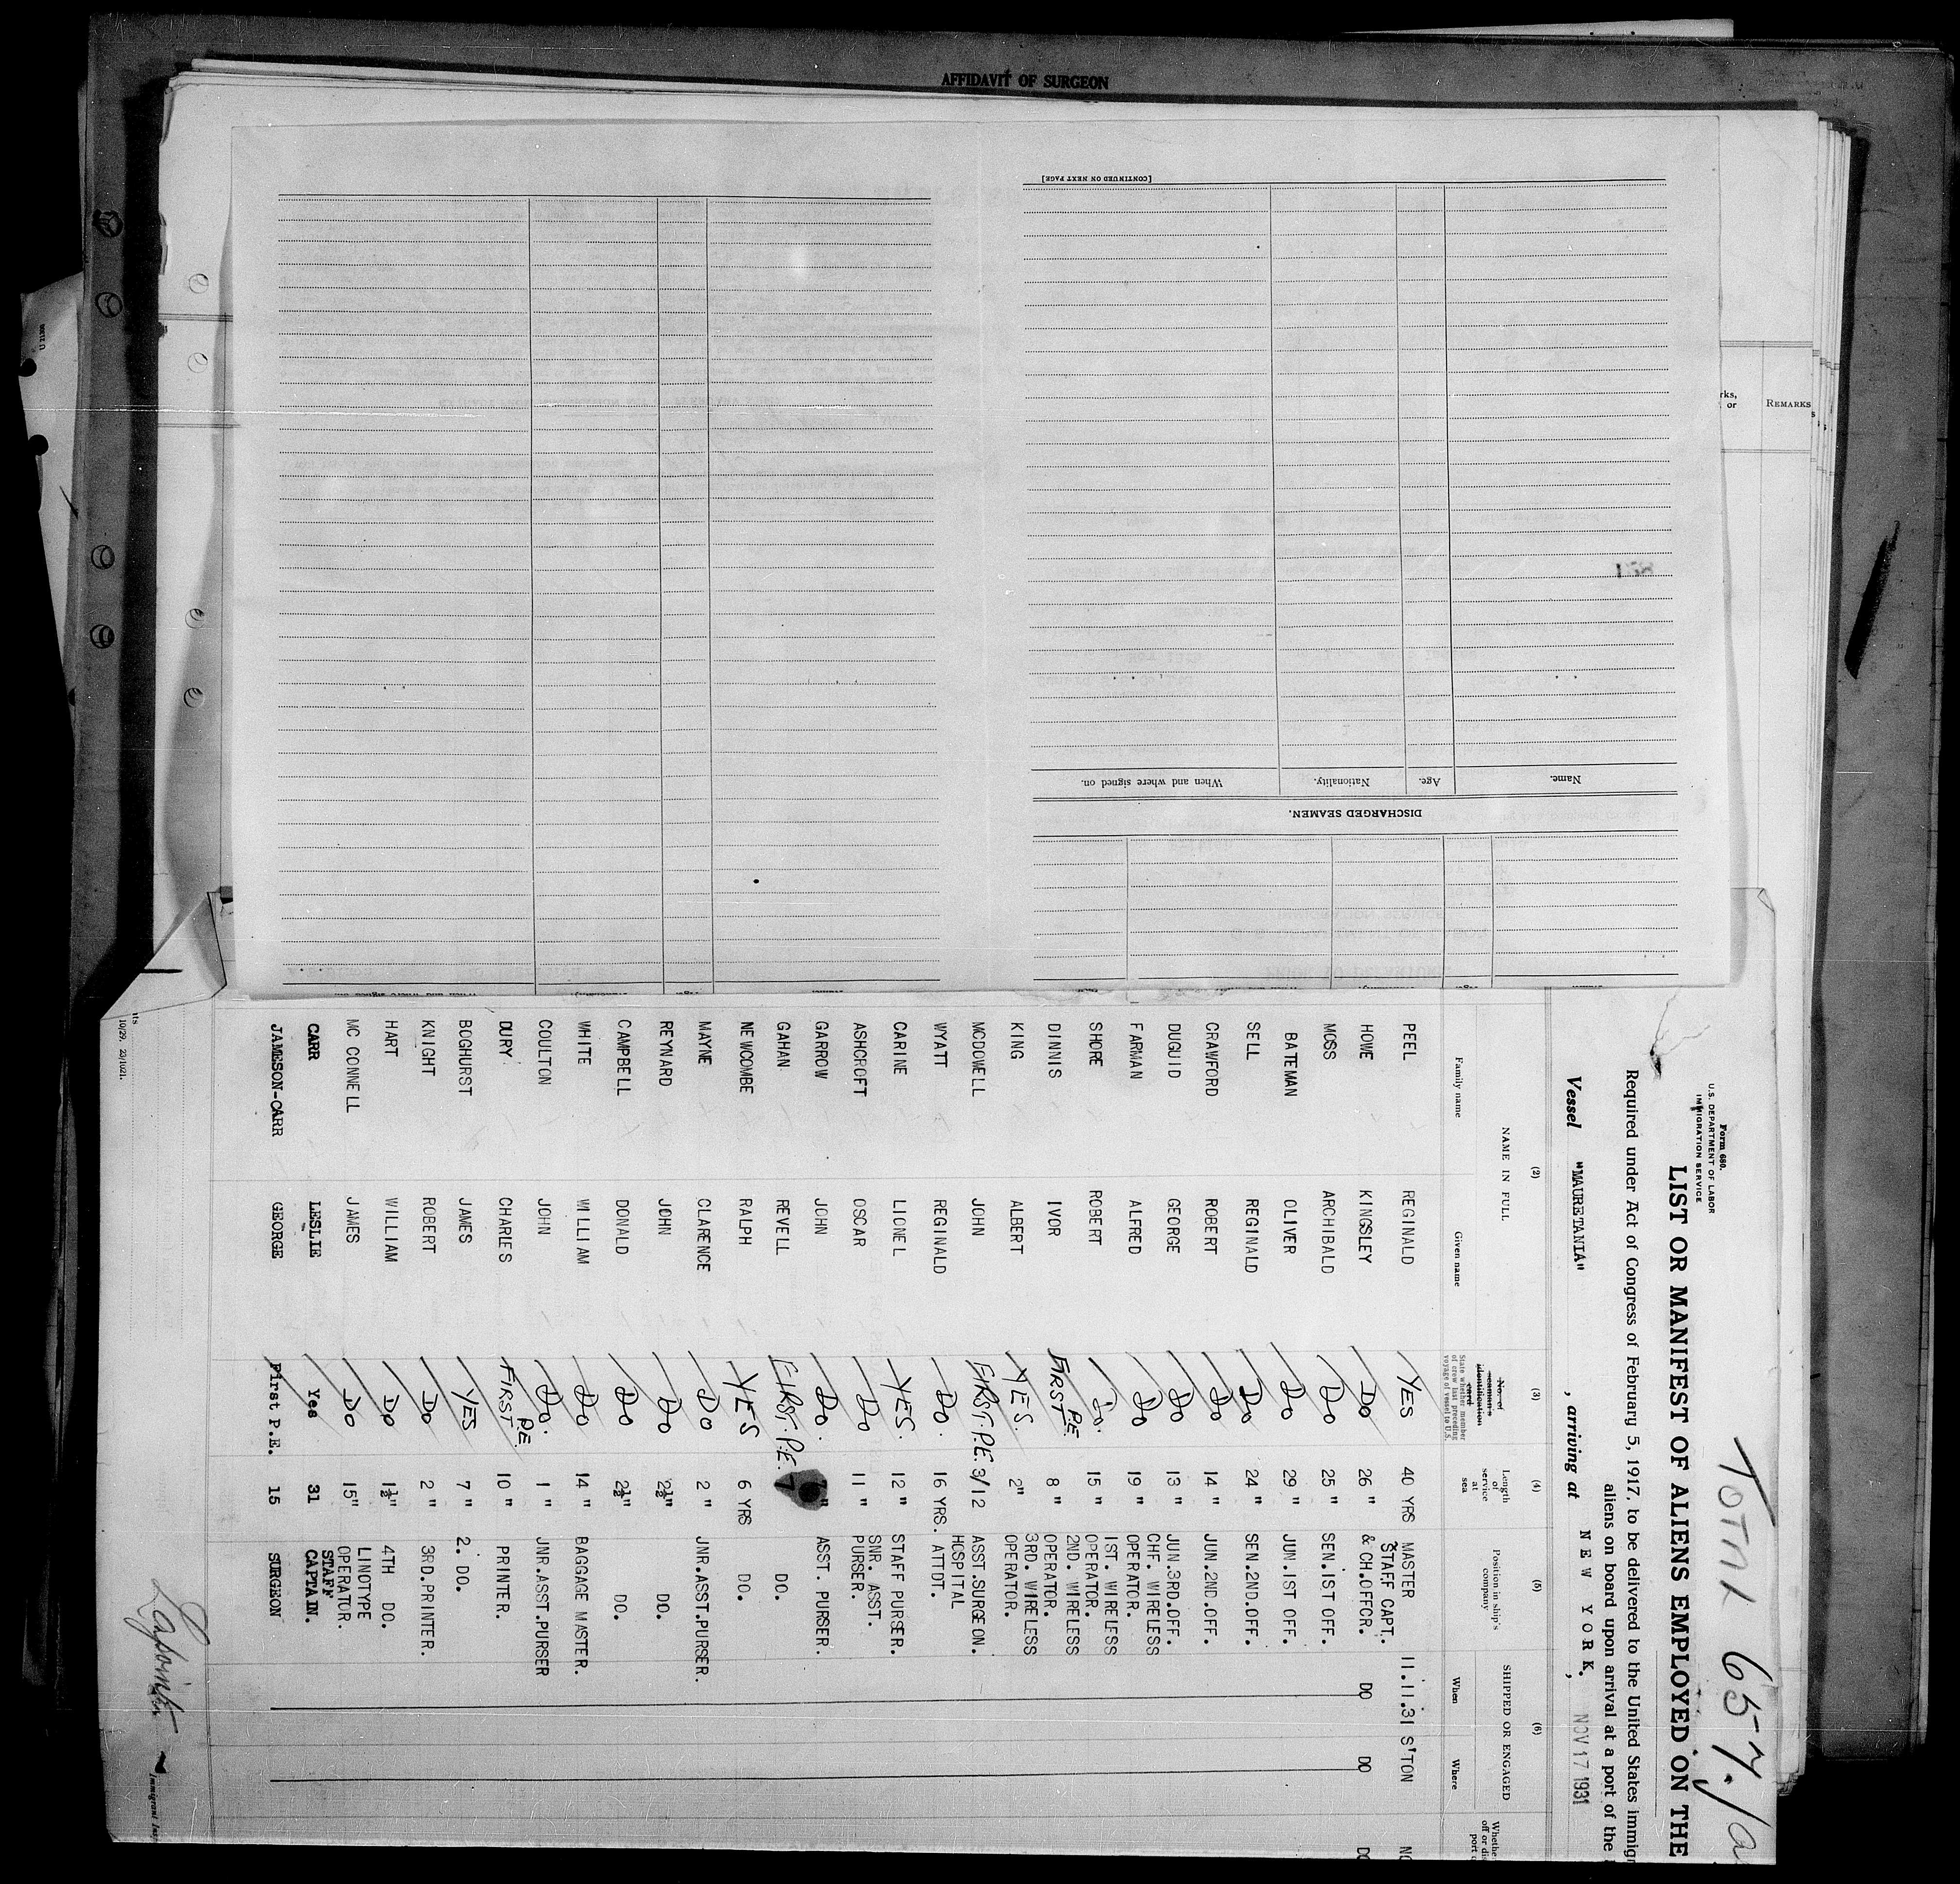 AFFIDAVIT OF SURGEON
REMARKS
[CONTINUED ON NEXT PAGE]
Name. Age. Nationality. When and where signed on.
DISCHARGED SEAMEN.
TOTAL 657.
Form 680.
U.S. DEPARTMENT OF LABOR
IMMIGRATION SERVICE
LIST OR MANIFEST OF ALIENS EMPLOYED ON THE
Required under Act of Congress of February 5, 1917, to be delivered to the United States immigr
aliens on board upon arrival at a port of the
Vessel "MAURETANIA" , arriving at NEW YORK, NOV 17 1931
(2) (3) (4) (5) (6)
NAME IN FULL
Family name Given name
No. of seaman's identification card
State whether member of crew last preceding voyage of vessel to U.S.
Length of service at sea
Position in ship's company
SHIPPED OR ENGAGED
When Where
PEEL REGINALD YES 40 YRS MASTER 11.11.31 S'TON NO
HOWE KINGSLEY DO 26 " STAFF CAPT. & CH.OFFCR. DO DO DO
MOSS ARCHIBALD DO 25 " SEN.1ST OFF.
BATEMAN OLIVER DO 29 " JUN.1ST OFF.
SELL REGINALD DO 24 " SEN.2ND.OFF.
CRAWFORD ROBERT DO 14 " JUN.2ND.OFF.
DUGUID GEORGE DO 13 " JUN.3RD.OFF.
FARMAN ALFRED DO 19 " CHF. WIRELESS OPERATOR.
SHORE ROBERT Do. 15 " 1ST. WIRELESS OPERATOR.
DINNIS IVOR FIRST P.E. 8 " 2ND. WIRELESS OPERATOR.
KING ALBERT YES. 2" 3RD. WIRELESS OPERATOR.
MCDOWELL JOHN FIRST P.E. 3/12 ASST.SURGEON.
WYATT REGINALD DO. 16 YRS. HOSPITAL ATTDT.
CARINE LIONEL YES. 12 " STAFF PURSER.
ASHCROFT OSCAR DO 11 " SNR. ASST. PURSER.
GARROW JOHN DO. " ASST. PURSER.
GAHAN REVELL FIRST P.E. 7 DO.
NEWCOMBE RALPH YES 6 YRS DO.
MAYNE CLARENCE DO 2 " JNR.ASST.PURSER.
REYNARD JOHN DO 2½" DO.
CAMPBELL DONALD DO 2½" DO.
WHITE WILLIAM DO 14 " BAGGAGE MASTER.
COULTON JOHN DO. 1 " JNR.ASST.PURSER
DURY CHARLES FIRST P.E. 10 " PRINTER.
BOGHURST JAMES YES 7 " 2. DO.
KNIGHT ROBERT DO 2 " 3RD.PRINTER.
HART WILLIAM DO 1½" 4TH DO.
MC CONNELL JAMES DO 15" LINOTYPE OPERATOR.
CARR LESLIE Yes 31 STAFF CAPTAIN.
JAMESON-CARR GEORGE First P.E. 15 SURGEON
10/29. 23/1021.